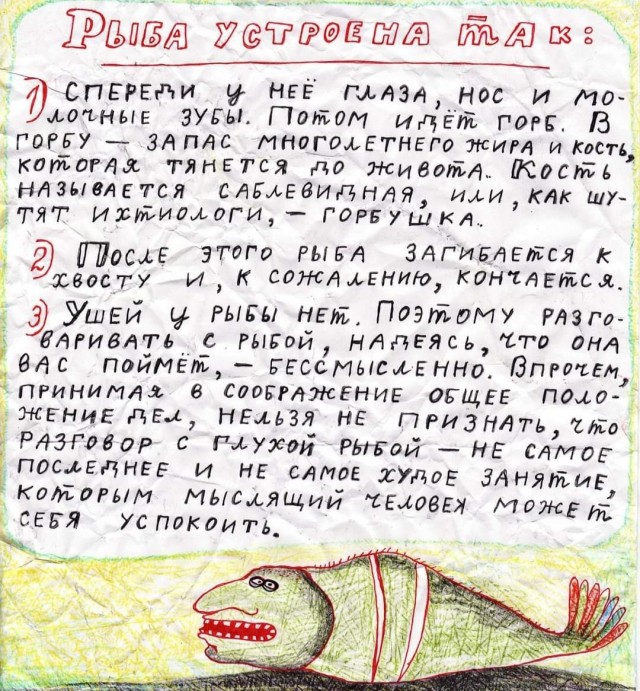 Рыба устроена так:
1) Спереди у неё глаза, нос и мо-
лочные зубы. Потом идёт горб. В
горбу — запас многолетнего жира и кость,
которая тянется до живота. Кость
называется саблевидная, или, как шу-
тят ихтиологи, — горбушка.
2) После этого рыба загибается к
хвосту и, к сожалению, кончается.
3) Ушей у рыбы нет. Поэтому разго-
варивать с рыбой, надеясь, что она
вас поймёт, — бессмысленно. Впрочем,
принимая в соображение общее поло-
жение дел, нельзя не признать, что
разговор с глухой рыбой — не самое
последнее и не самое худое занятие,
которым мыслящий человек может
себя успокоить.